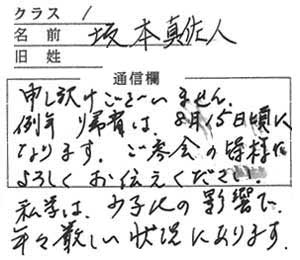 クラス 1
名前 坂本真佐人
旧姓
通信欄
申し訳けございません。
例年 帰省は、8月15日頃に
なります。ご参会の皆様に
よろしくお伝えください。
私学は、少子化の影響で、
年々厳しい状況にあります。